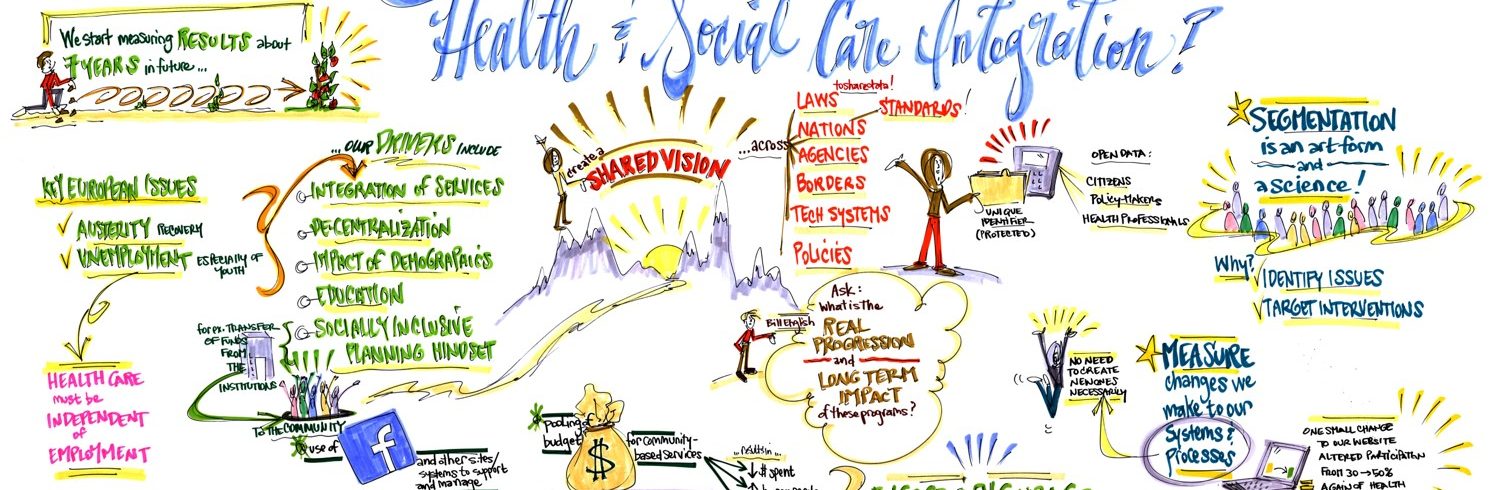 Health & Social Care Integration?
We start measuring RESULTS about
7 YEARS in future...
KEY EUROPEAN ISSUES
✓ AUSTERITY RECOVERY
✓ UNEMPLOYMENT ESPECIALLY OF
YOUTH
HEALTH CARE
must be
INDEPENDENT
of
EMPLOYMENT
...our DRIVERS INCLUDE
INTEGRATION of SERVICES
DECENTRALIZATION
IMPACT of DEMOGRAPHICS
EDUCATION
SOCIALLY INCLUSIVE
PLANNING MINDSET
for ex. TRANSFER
OF FUNDS
FROM
THE
INSTITUTIONS
TO THE COMMUNITY
use of
f
and other sites/
systems to support
and manage
create a
SHARED VISION
...across
LAWS
to share data!
STANDARDS!
NATIONS
AGENCIES
BORDERS
TECH SYSTEMS
POLICIES
UNIQUE
IDENTIFIER
(PROTECTED)
OPEN DATA:
CITIZENS
Policy-Makers
HEALTH PROFESSIONALS
Bill English
Ask:
What is the
REAL
PROGRESSION
and
LONG TERM
IMPACT
of these programs?
Pooling of
budget
$
for community-
based services
...results in...
↓ # spent
SEGMENTATION
is an art form
and
a science!
Why?
✓ IDENTIFY ISSUES
✓ TARGET INTERVENTIONS
NO NEED
TO CREATE
NEW ONES
NECESSARILY
MEASURE
changes we
make to our
Systems &
Processes
ONE SMALL CHANGE
TO OUR WEBSITE
ALTERED PARTICIPATION
FROM 30 → 50%
AGAIN OF HEALTH